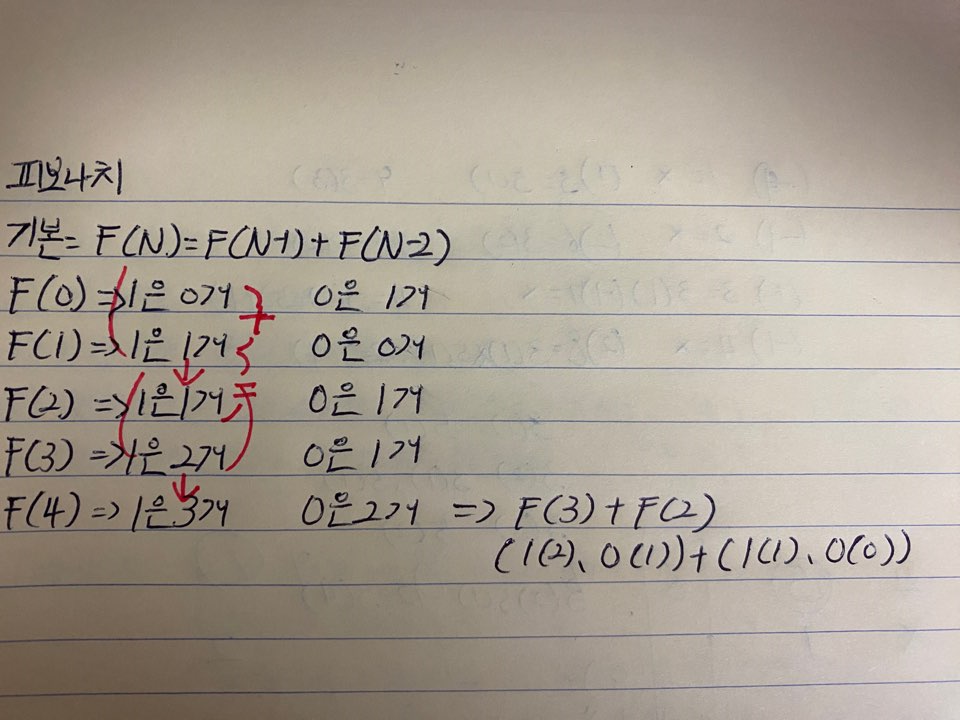 피보나치
기본= F(N)=F(N-1)+F(N-2)
F(0)=>1은 0개 0은 1개
F(1)=>1은 1개 0은 0개
F(2) =>1은1개 0은 1개
F(3) =>1은 2개 0은 1개
F(4) => 1은3개 0은2개 => F(3)+F(2)
(1(2)、0(1))+(1(1)、0(0))